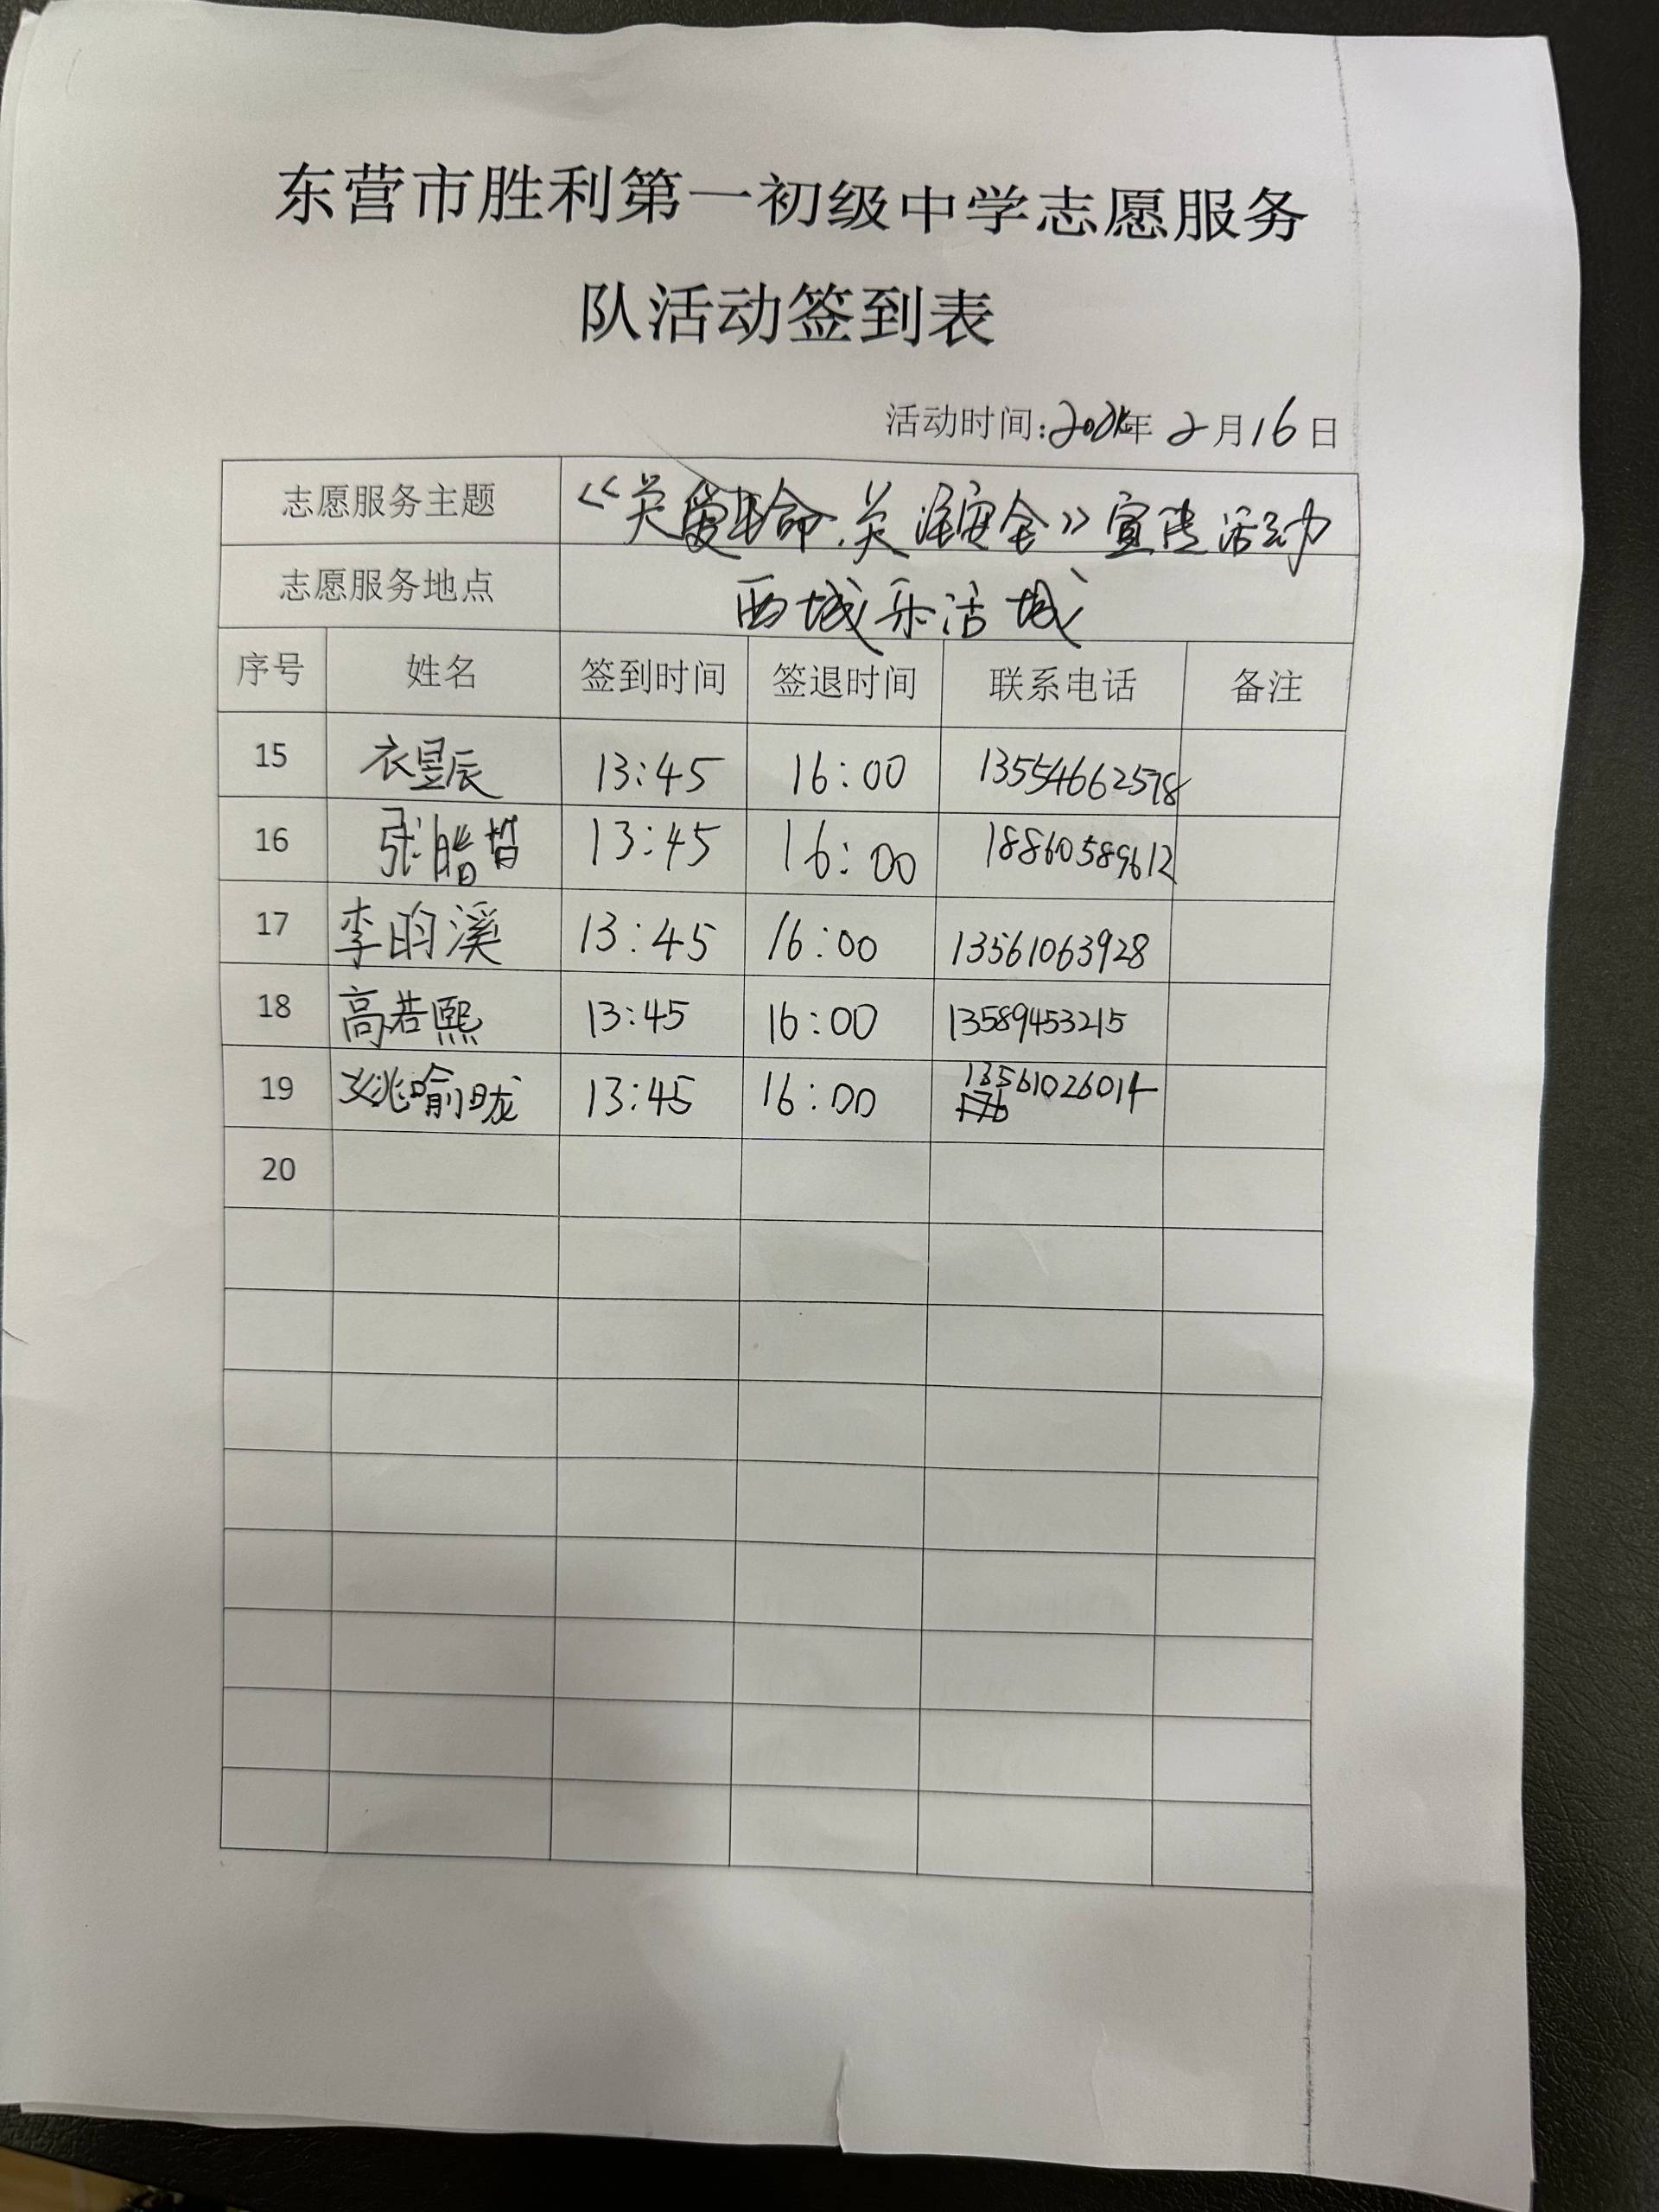 东营市胜利第一初级中学志愿服务
队活动签到表
活动时间: 年 2 月 16 日
志愿服务主题 《关爱生命.关注安全》宣传活动
志愿服务地点 西城乐活城
序号 姓名 签到时间 签退时间 联系电话 备注
15 衣昱辰 13:45 16:00 13554662578
16 张皓哲 13:45 16:00 18860589612
17 李昀溪 13:45 16:00 13561063928
18 高若熙 13:45 16:00 13589453215
19 姚喻昽 13:45 16:00 13561026014
20